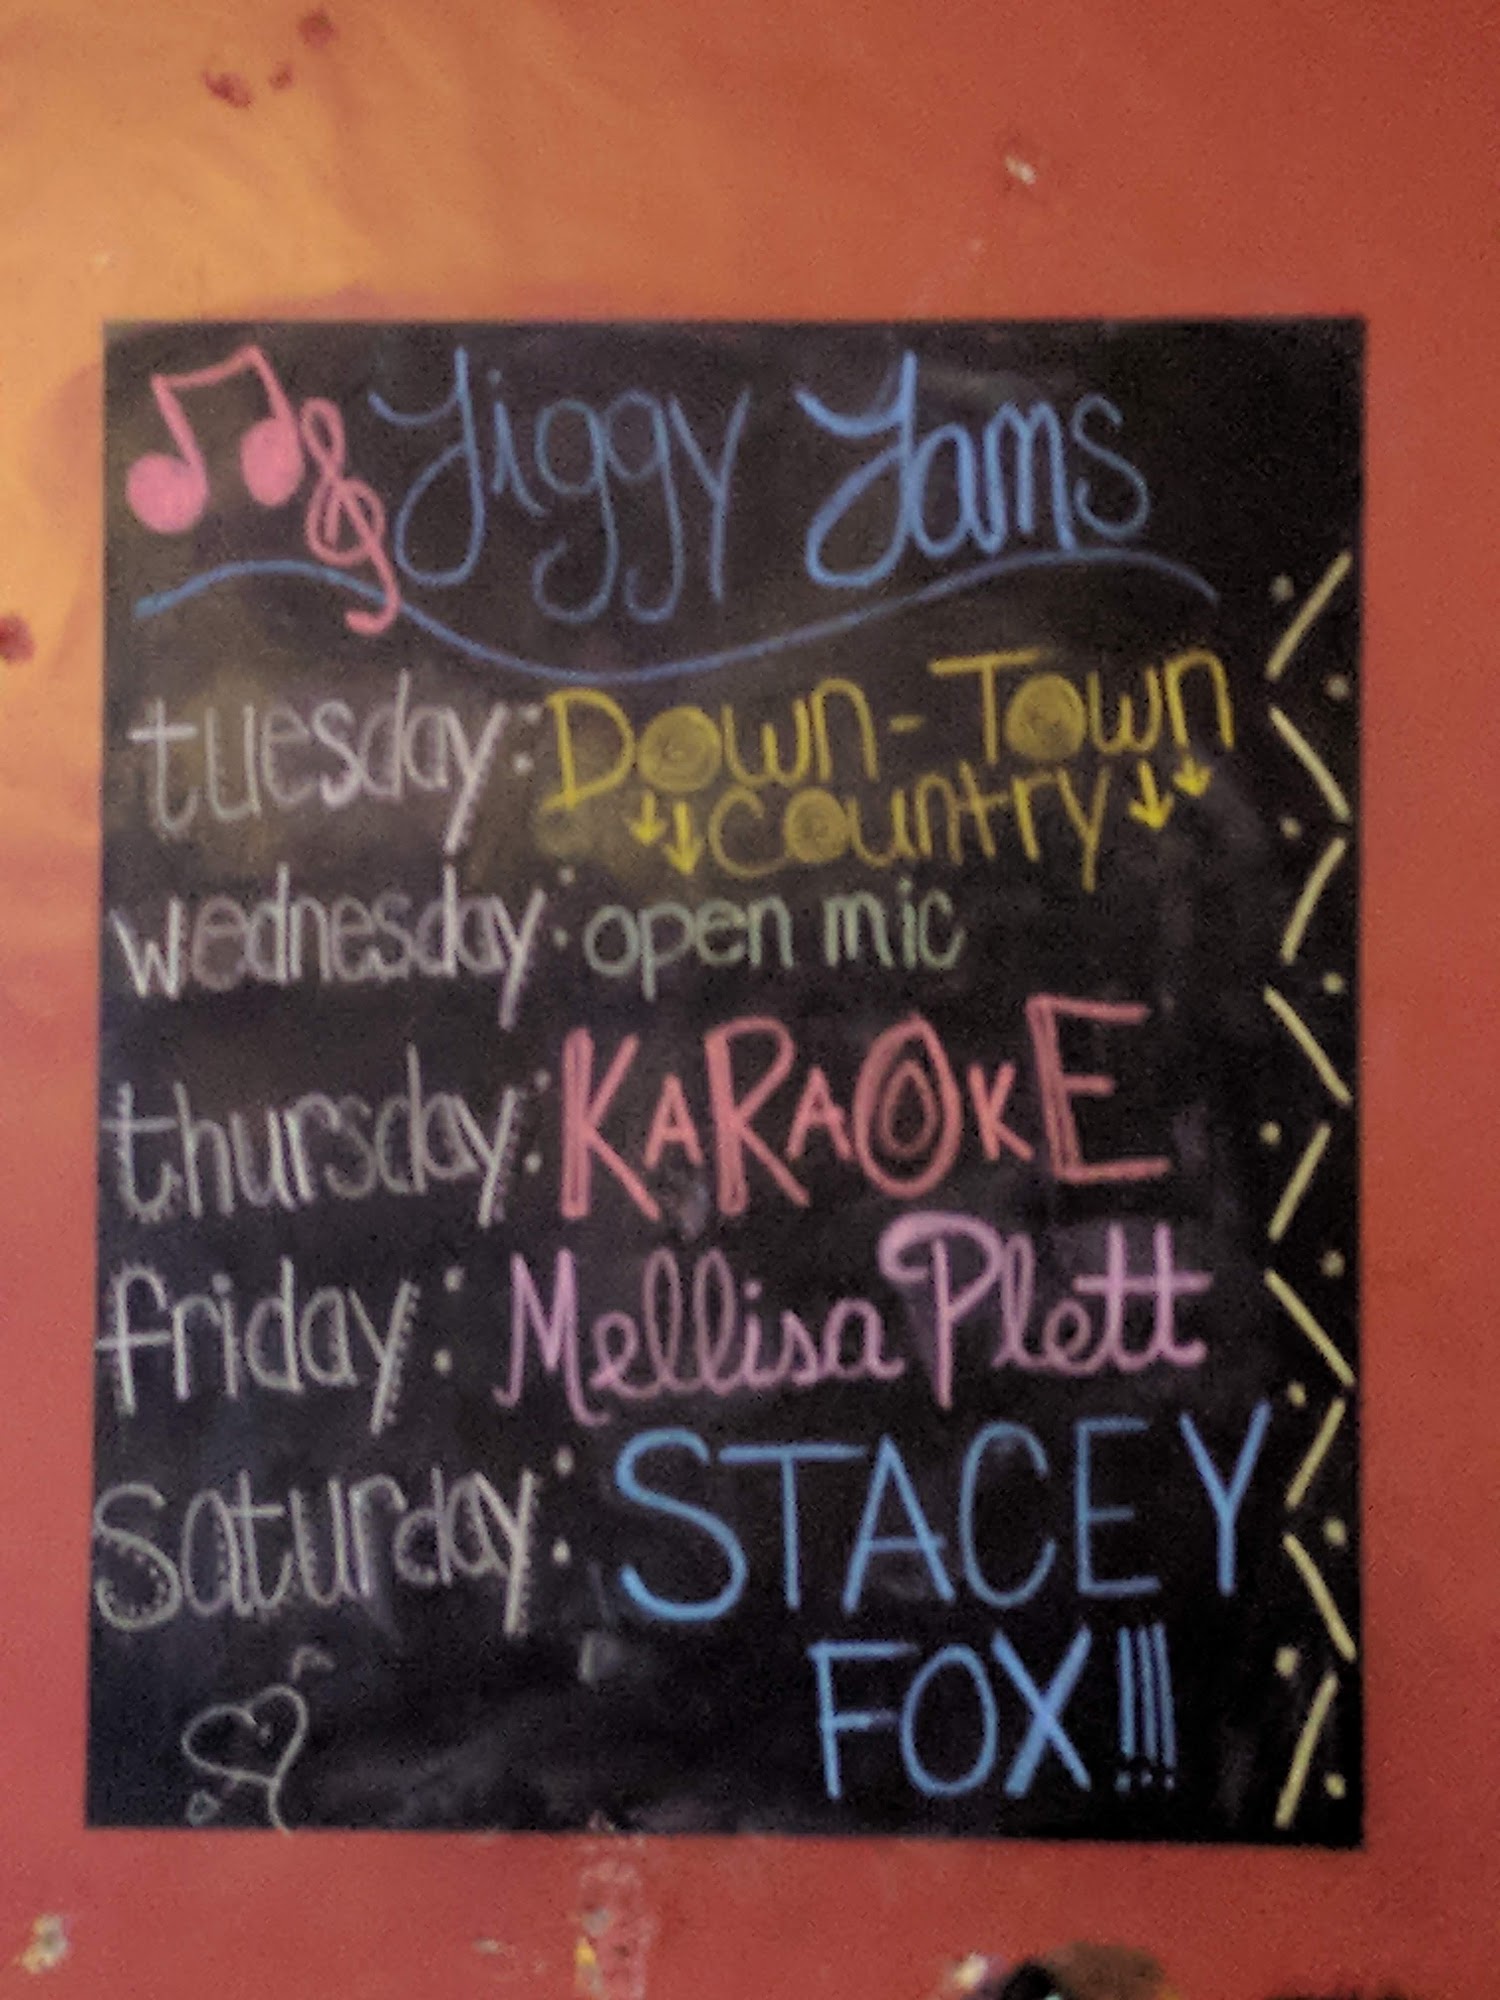 Jiggy Jams
tuesday: Down-Town
country
wednesday: open mic
thursday: KARAOKE
friday: Mellisa Plett
Saturday: STACEY
FOX!!!